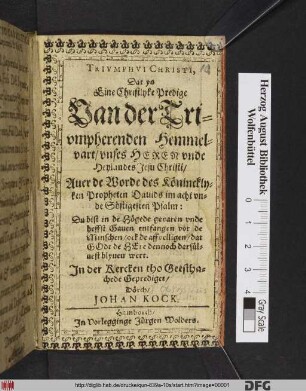 TRIVMPHVI CHRISTI,
Dat ys
Eine Christlyke Predige
Van der Tri-
vmpherenden Hemmel-
vart / vnses HEREN vnde
Heylandes Jesu Christi /
Auer de Worde des Könincklyn-
ken Propheten Dauids im acht vn-
de Söstigesten Psalm:
Du bist in de Högede geuaren vnde
heffst Gauen entfangen vör de
Minschen / ock de affvelligen / dat
GOde de HEre dennoch dersül-
uest blyuen wert.
In der Kercken tho Geesthа-
chede Geprediget /
Dörch:
JOHAN KOCK.
Hamborch /
In Vorlegginge Jürgen Wolders.
Herzog August Bibliothek
Wolfenbüttel
Gray Scale
http://diglib.hab.de/drucke/
start.htm?image=00001
DFG